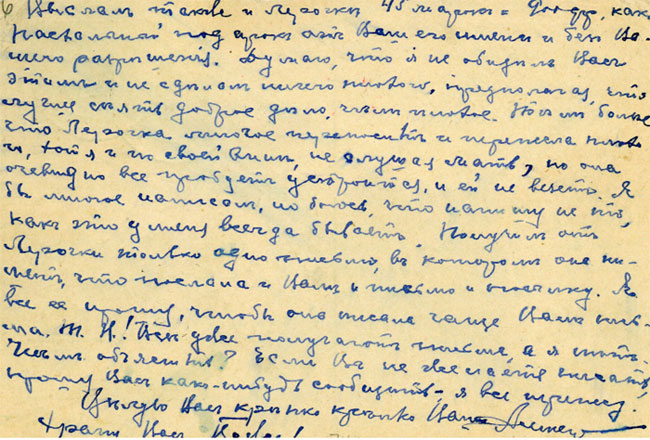 Выслалъ также и Лерочки 45 марокъ = , какъ
Пасхальный подарокъ отъ Вашего имени и безъ Ва-
шего разрешенія. Думаю, что я не обидилъ Васъ
этимъ и не сделалъ ничего плохого, предполагая, что
лучше делать доброе дело, чемъ плохое. Темъ более
что Лерочка многое переноситъ и перенесла плохо
го, хотя и по своей вине, не слушая мать, но она
очевидно все пробуетъ устроится, и ей не везетъ. Я
бы многое написалъ, но боюсь, что напишу не то,
какъ это у меня всегда бываетъ. Получилъ отъ
Лерочки только одно письмо, въ которомъ она пи-
шетъ, что послала и Вамъ и письмо и посылку. Я
все ее прошу, чтобы она писала чаще Вамъ пись-
ма. Ж. Н! Все уже получаютъ письма, а я нетъ.
Чемъ объяснить? Если Вы не желаете писать,
прошу Васъ какъ-нибудь сообщить, я все перенесу.
Целую Васъ крепко крепко Вашъ
Храни Васъ